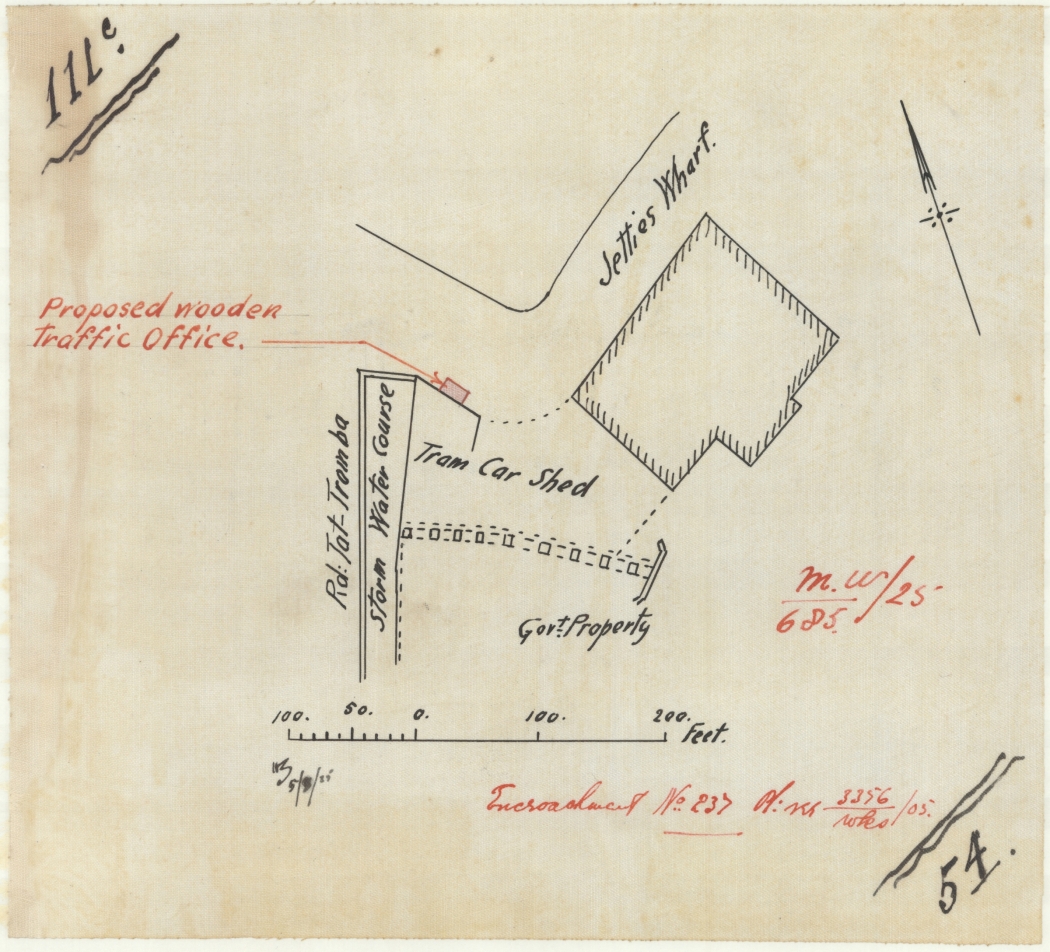 111c.
Jetties Wharf.
Proposed wooden
Traffic Office.
Rd: Tat-Tromba
Storm Water Course
Tram Car Shed
Govt. Property
M.W/25
685.
100. 50. 0. 100. 200. Feet.
5/9/25
Encroachment No 237 3356/05.
54.